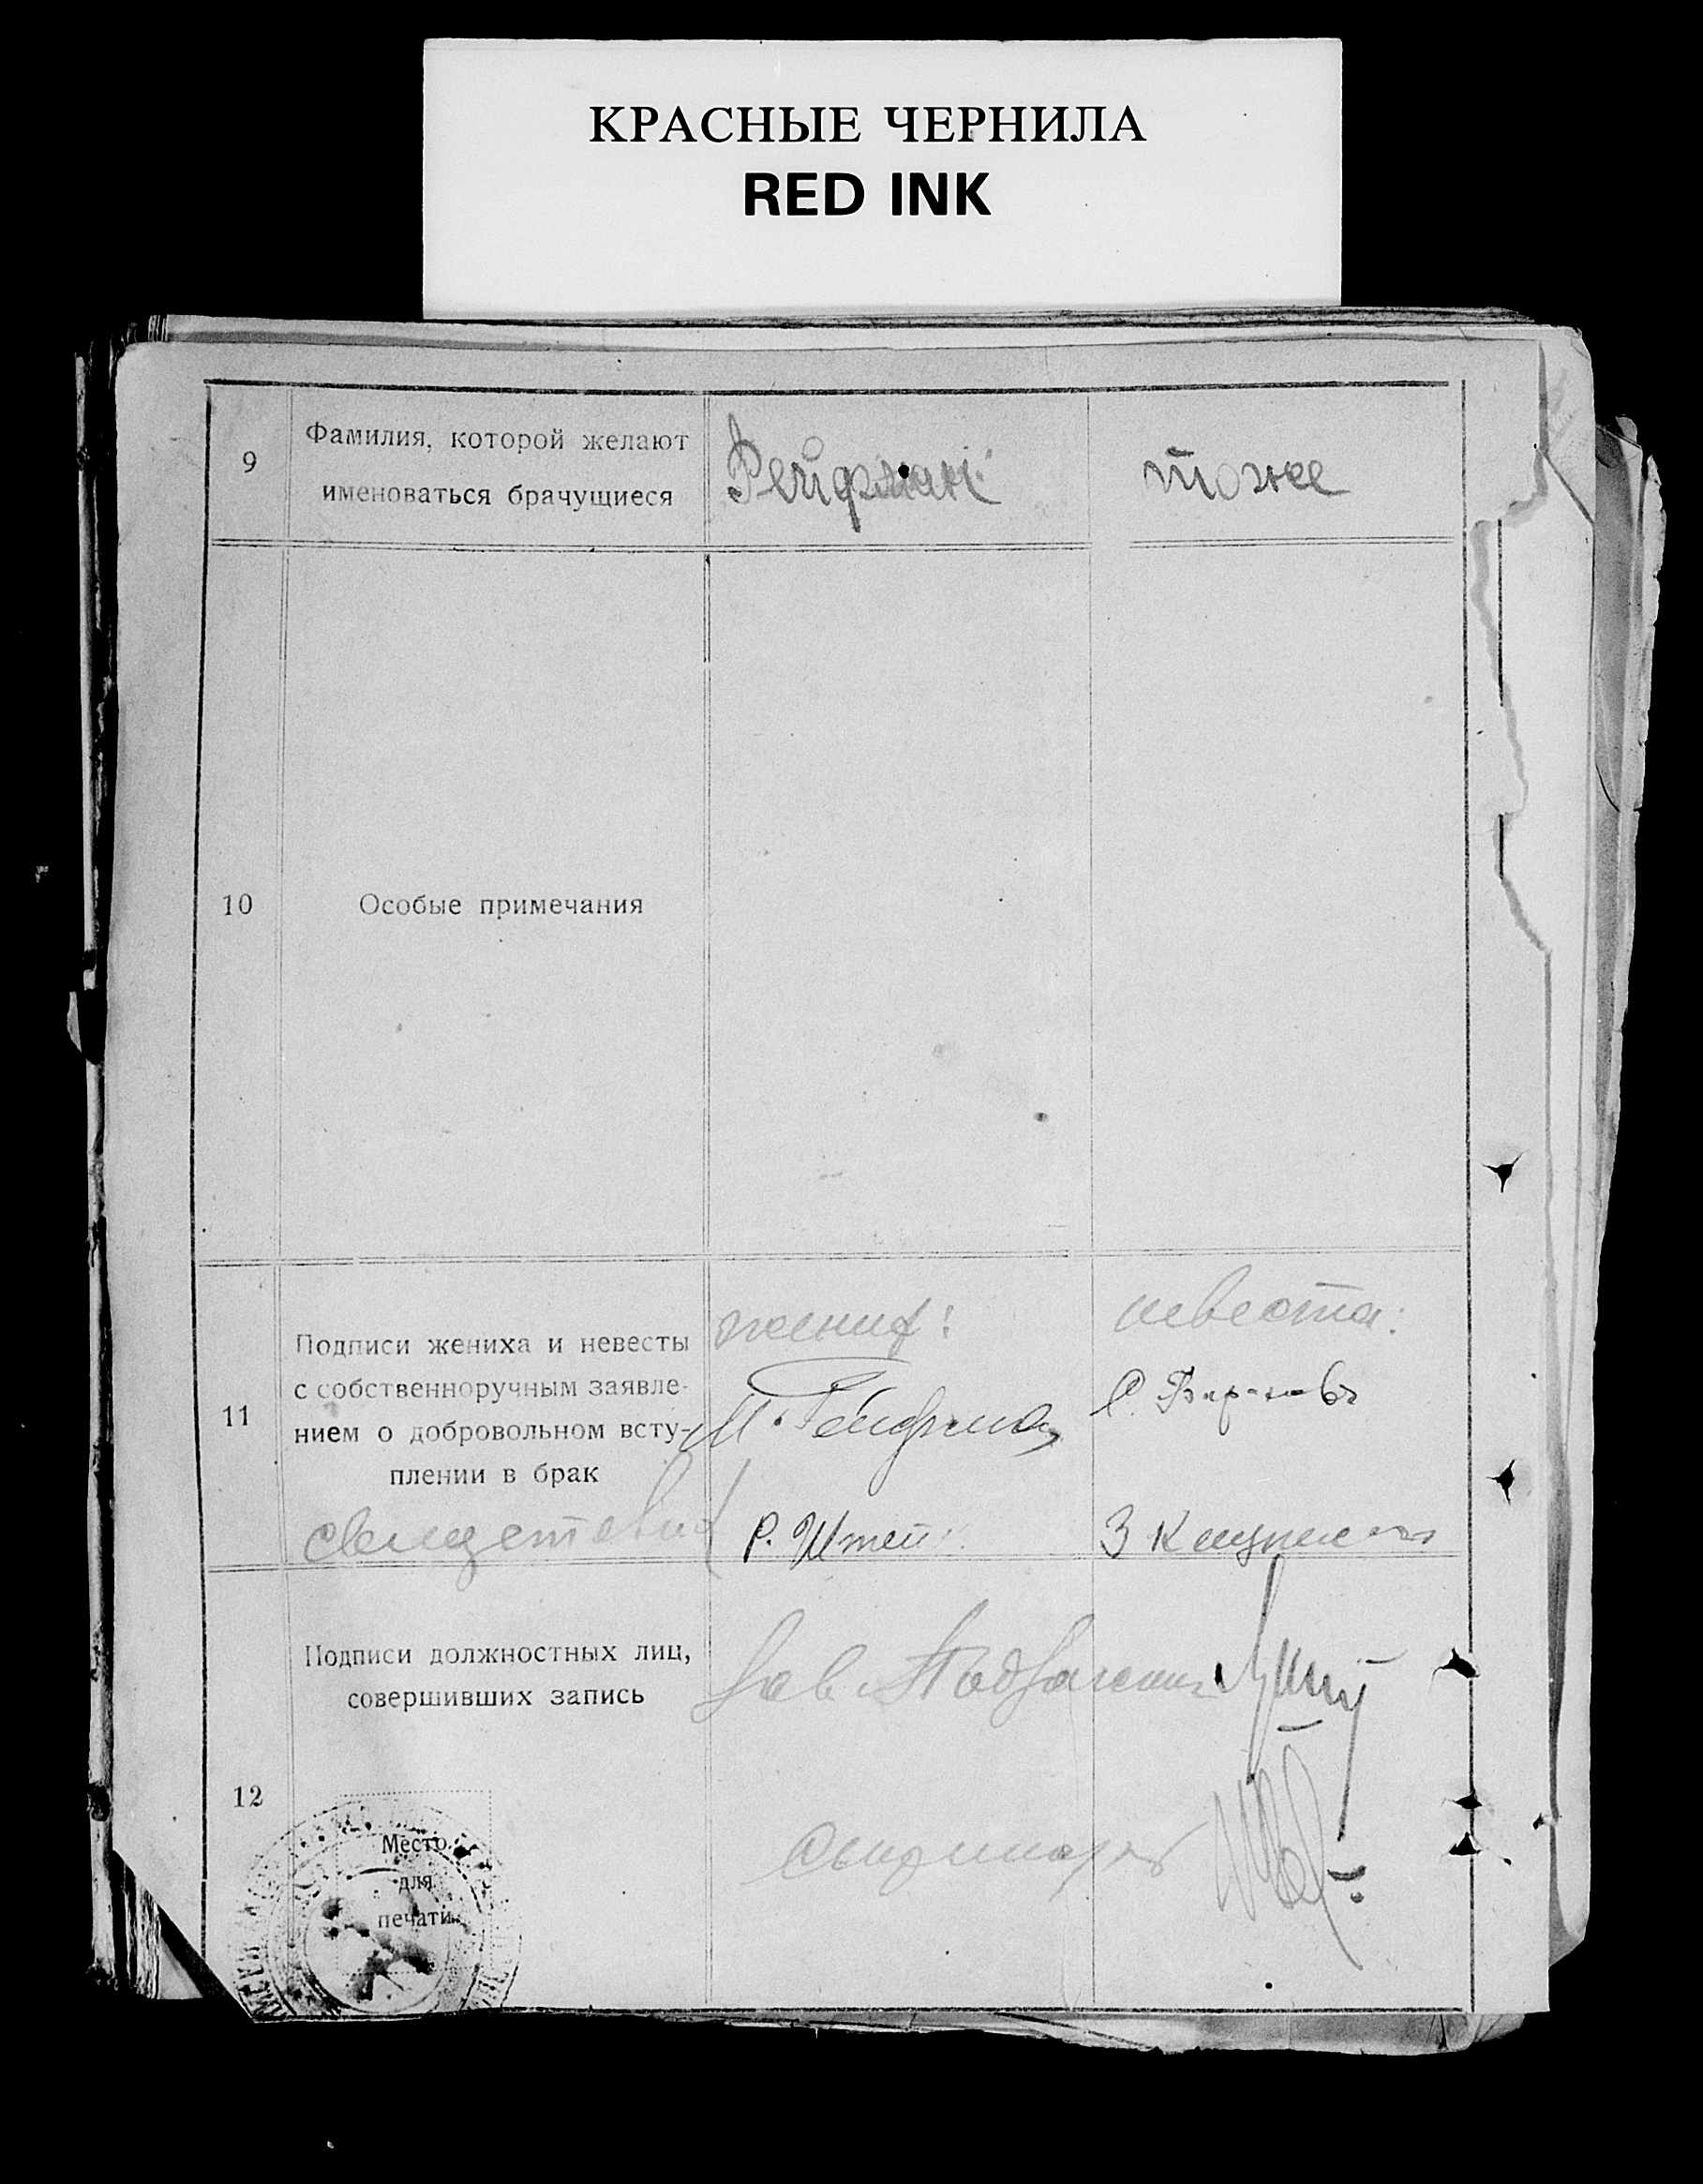 КРАСНЫЕ ЧЕРНИЛА
RED INK
9
Фамилия, которой желают
именоваться брачущиеся
Рейфман
тоже
10
Особые примечания
11
Подписи жениха и невесты
с собственноручным заявле-
нием о добровольном всту-
плении в брак
жених:
невеста:
М. Рейфман
С.
свидетели
Р. Штейн
З
12
Подписи должностных лиц,
совершивших запись
Зав. Подзагсом
Место
для
печати